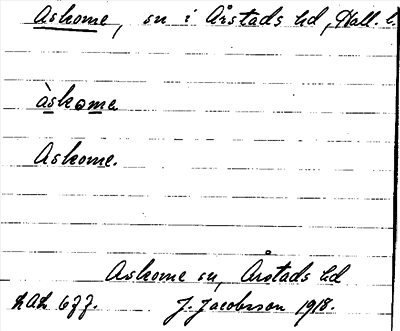 Askome, sn i Årstads hd, Hall. l.
àskome
Askome.
Askome sn, Årstads hd
J. Jacobsson 1918.